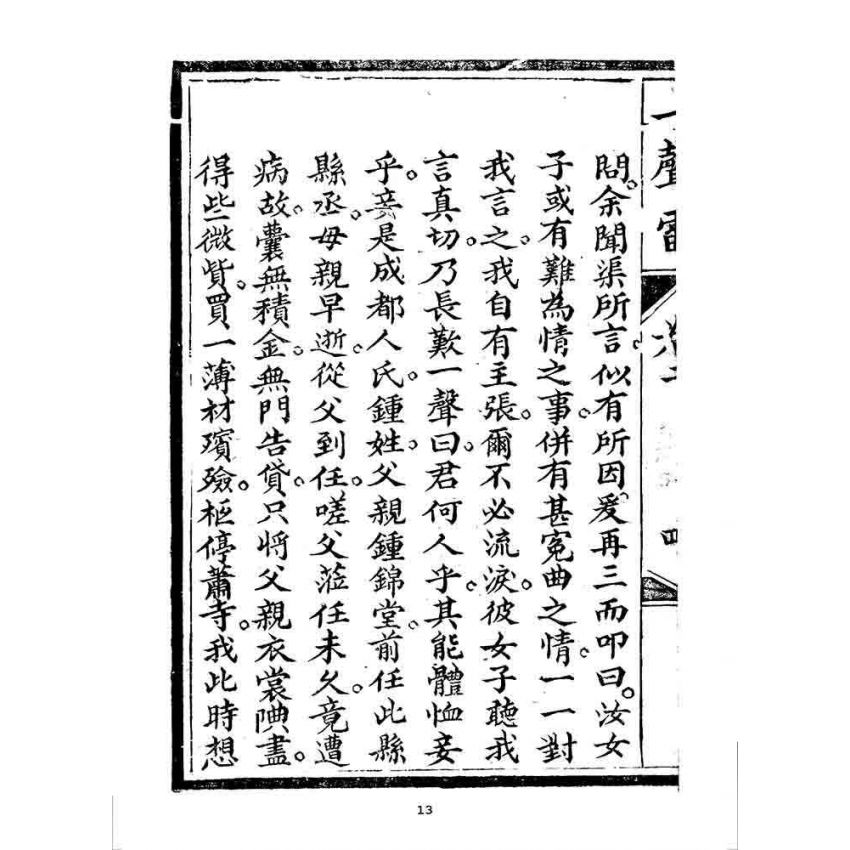 一聲雷
問。余聞渠所言。似有所因。爰再三而叩曰。汝女
子或有難為情之事。併有甚冤曲之情。一一對
我言之。我自有主張。爾不必流淚。彼女子聽我
言真切。乃長歎一聲曰。君何人乎。其能體恤妾
乎。妾是成都人氏。鍾姓。父親鍾錦堂。前任此縣
縣丞。母親早逝。從父到任。嗟父蒞任未久。竟遭
病故。囊無積金。無門告貸。只將父親衣裳㑼盡。
得些微貲。買一薄材殯殮。柩停蕭寺。我此時想
13